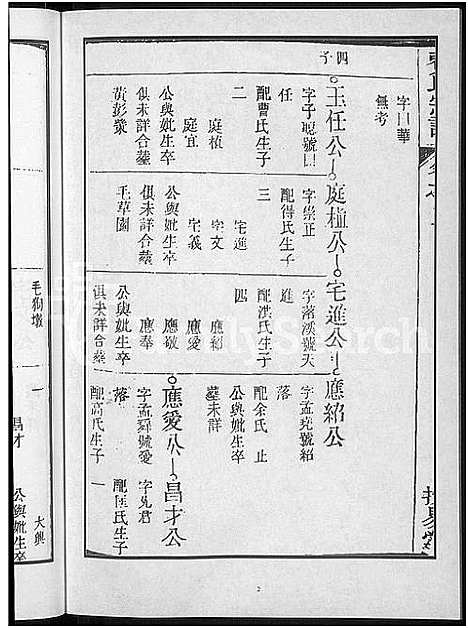 字曰華
無考
四子
玉任公
庭植公
宅進公
應紹公
字子
號
任
配曹氏生子
二
庭植
庭宜
公與妣生卒
俱未詳合墓
黄彭漿
字崇正
配得氏生子
三
宅進
宅文
宅義
公與妣生卒
俱未詳合墓
毛草園
字落溪號天
進
配洪氏生子
四
應紹
應愛
應敬
應奉
公與妣生卒
俱未詳合墓
毛狗墩
字孟堯號紹
落
配余氏 止
公與妣生卒
墓未詳
應愛公
昌才公
字孟舜號愛
落
配高氏生子
一
昌才
公與妣生卒
字
君
配匡氏生子
一
大興
公與妣生卒
FamilySearch
2